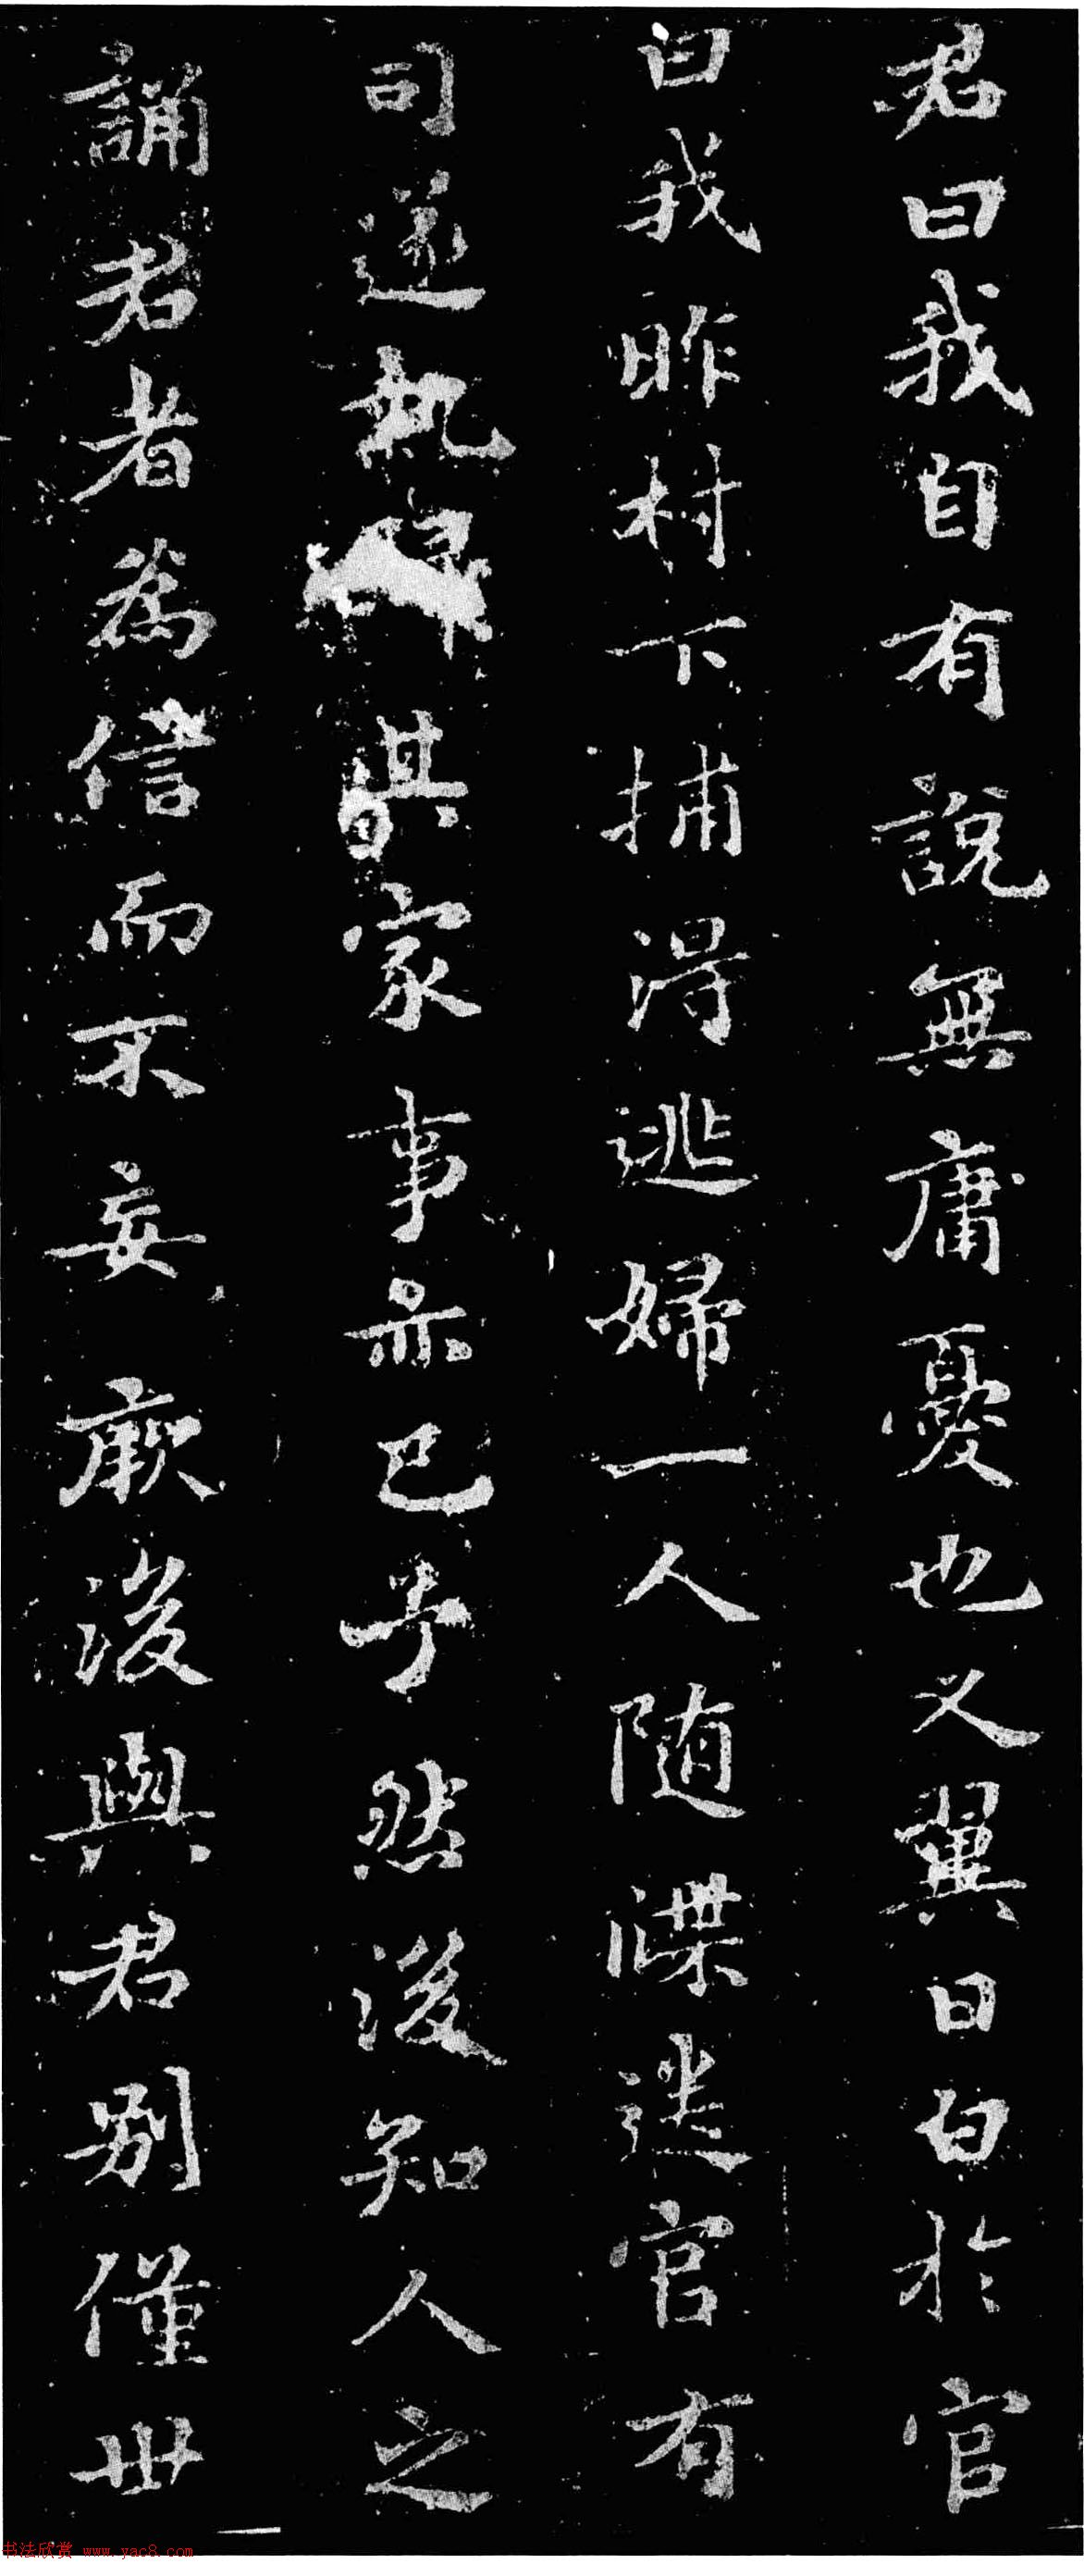 君曰我自有說無庸憂也又翼日白於官
曰我昨村下捕淂逃婦一人随牒逆官有
司遂執歸其家事亦已乎然後知人之
誦君者為信而不妄厥後與君别僅卅
书法欣赏 www.yac8.com